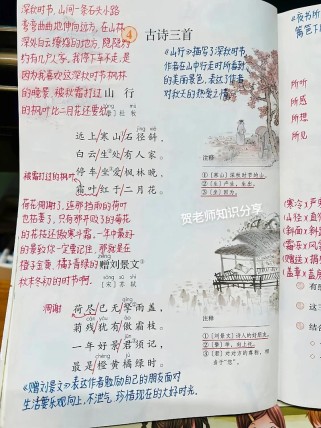 4 古诗三首
深秋时节，山间一条石头小路
弯弯曲曲地伸向远方，在山林
深处白云缭绕的地方，隐隐约
约有几户人家。我停下车不走，是
因为我喜欢这深秋时节枫林
的晚景，被秋霜打过
的枫叶比二月花还要红。
《山行》描写了深秋时节，
作者在山中行走时所看到
的美丽景色，表达了作者
对秋天的热爱之情。
山行
[唐] 杜牧
远上寒山石径斜，
白云生处有人家。
停车坐爱枫林晚，
霜叶红于二月花。
被霜打过的
注释
①〔寒山〕深秋时节的山。
贺老师知识分享
荷花凋谢了，连那挡雨的荷叶
的花枝还傲寒斗霜。一年中最好
的景致你一定要记住，那就是在
橙子金黄、橘子青绿的
秋末冬初的时节啊。
赠刘景文
[宋] 苏轼
凋谢
荷尽已无擎雨盖，
菊残犹有傲霜枝。
一年好景君须记，
最是橙黄橘绿时。
注释
①〔刘景文〕诗人的好朋友。
②〔擎〕举，向上托。
《赠刘景文》表达作者勉励自己的朋友面对
生活要乐观向上，不泄气，珍惜现在的大好时光。
所听
所感
所想
所见